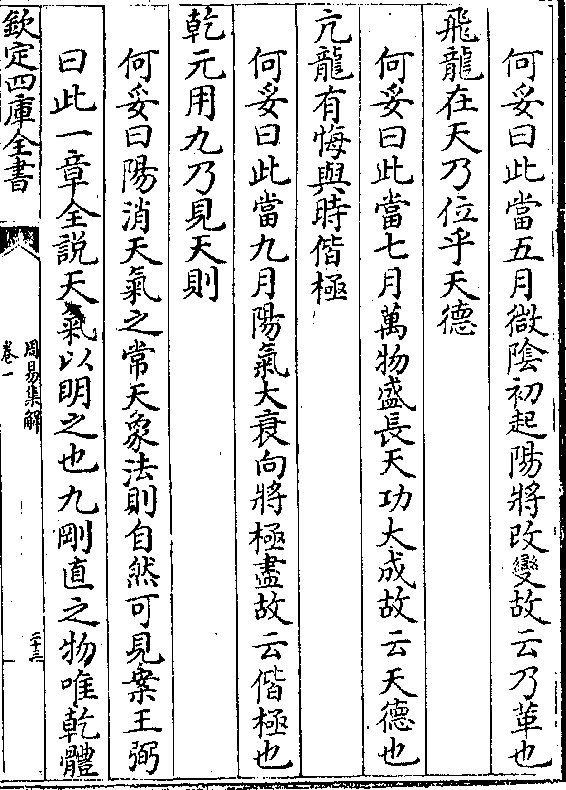 何妥曰此當五月微陰初起陽將改變故云乃革也
飛龍在天乃位乎天德
何妥曰此當七月萬物盛長天功大成故云天德也
亢龍有悔與時偕極
何妥曰此當九月陽氣大衰向將極盡故云偕極也
乾元用九乃見天則
何妥曰陽消天氣之常天象法則自然可見案王弼
曰此一章全説天氣以明之也九剛直之物唯乾體
欽定四庫全書
周易集解
卷一
二十三